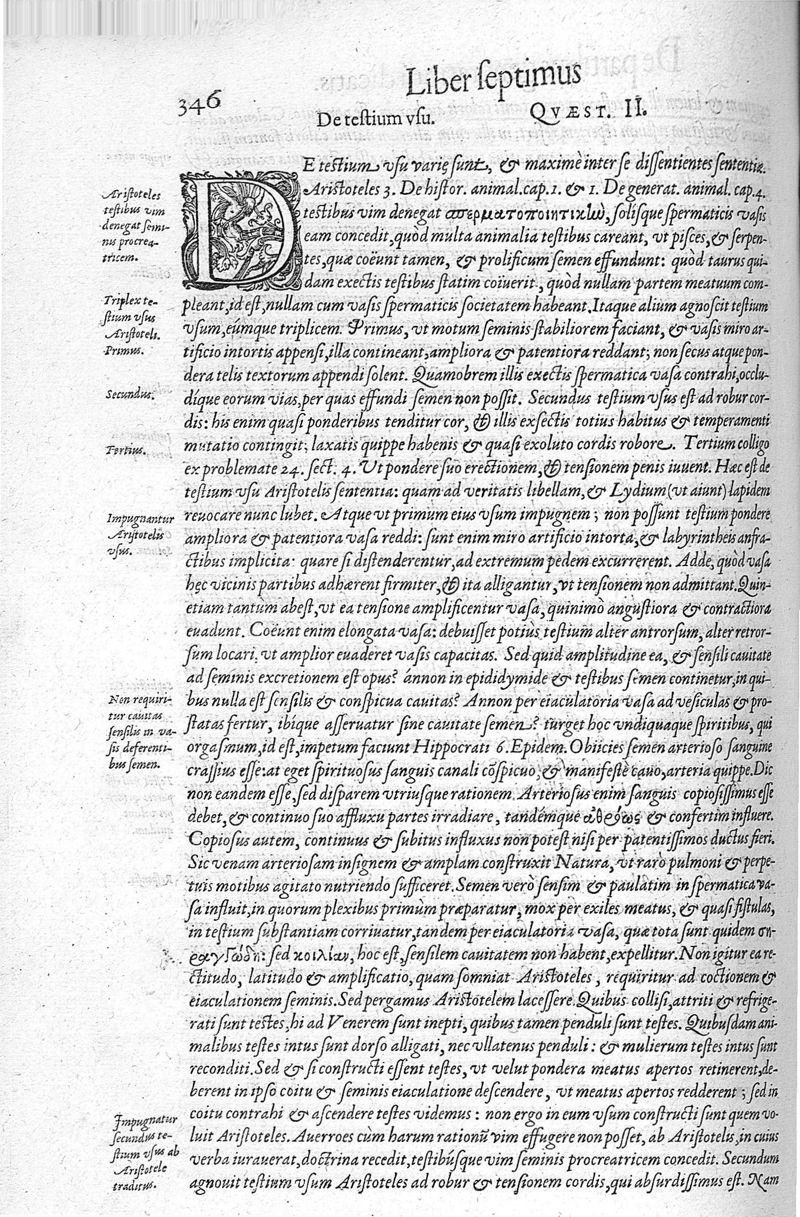 346
Liber septimus
De testium vsu.
QVÆST. II.
DE testium vsu varię sunt, & maximè inter se dissentientes sententiæ.
Aristoteles 3. De histor. animal. cap. 1. & 1. De generat. animal. cap. 4.
testibus vim denegat σπερματοποιητικὼ, solisque spermaticis vasis
eam concedit, quòd multa animalia testibus careant, vt pisces, & serpen-
tes, quæ coëunt tamen, & prolificum semen effundunt: quòd taurus qui-
dam exectis testibus statim coïuerit, quòd nullam partem meatuum com-
pleant, id est, nullam cum vasis spermaticis societatem habeant. Itaque alium agnoscit testium
vsum, eúmque triplicem. Primus, vt motum seminis stabiliorem faciant, & vasis miro ar-
tificio intortis appensi, illa contineant, ampliora & patentiora reddant; non secus atque pon-
dera telis textorum appendi solent. Quamobrem illis exectis spermatica vasa contrahi, occlu-
dique eorum vias, per quas effundi semen non possit. Secundus testium vsus est ad robur cor-
dis: his enim quasi ponderibus tenditur cor, & illis exsectis totius habitus & temperamenti
mutatio contingit; laxatis quippe habenis & quasi exoluto cordis robore. Tertium colligo
ex problemate 24. sect. 4. Vt pondere suo erectionem, & tensionem penis iuuent. Hæc est de
testium vsu Aristotelis sententia: quam ad veritatis libellam, & Lydium (vt aiunt) lapidem
reuocare nunc lubet. Atque vt primum eius vsum impugnem; non possunt testium pondere
ampliora & patentiora vasa reddi: sunt enim miro artificio intorta, & labyrintheis anfra-
ctibus implicita: quare si distenderentur, ad extremum pedem excurrerent. Adde, quòd vasa
hęc vicinis partibus adhærent firmiter, & ita alligantur, vt tensionem non admittant. Quin-
etiam tantum abest, vt ea tensione amplificentur vasa, quinimò angustiora & contractiora
euadunt. Coëunt enim elongata vasa: debuisset potius testium alter antrorsum, alter retror-
sum locari, vt amplior euaderet vasis capacitas. Sed quid amplitudine ea, & sensili cauitate
ad seminis excretionem est opus? ánnon in epididymide & testibus semen continetur, in qui-
bus nulla est sensilis & conspicua cauitas? Annon per eiaculatoria vasa ad vesiculas & pro-
statas fertur, ibique asseruatur sine cauitate semen? turget hoc vndiquaque spiritibus, qui
orgasmum, id est, impetum faciunt Hippocrati 6. Epidem. Obiicies semen arterioso sanguine
crassius esse: at eget spirituosus sanguis canali cōspicuo, & manifestè cauo, arteria quippe. Dic
non eandem esse, sed disparem vtriusque rationem. Arteriosus enim sanguis copiosissimus esse
debet, & continuo suo affluxu partes irradiare, tandémque ἀθρόως & confertim influere.
Copiosus autem, continuus & subitus influxus non potest nisi per patentissimos ductus fieri.
Sic venam arteriosam insignem & amplam construxit Natura, vt raro pulmoni & perpe-
tuis motibus agitato nutriendo sufficeret. Semen verò sensim & paulatim in spermatica va-
sa influit, in quorum plexibus primùm præparatur, mox per exiles meatus, & quasi fistulas,
in testium substantiam corriuatur, tandem per eiaculatoria vasa, quæ tota sunt quidem ση-
ραγγώδη: sed κοιλίαν, hoc est, sensilem cauitatem non habent, expellitur. Non igitur ea re-
ctitudo, latitudo & amplificatio, quam somniat Aristoteles, requiritur ad coctionem &
eiaculationem seminis. Sed pergamus Aristotelem lacessere. Quibus collisi, attriti & refrige-
rati sunt testes, hi ad Venerem sunt inepti, quibus tamen penduli sunt testes. Quibusdam ani-
malibus testes intus sunt dorso alligati, nec vllatenus penduli: & mulierum testes intus sunt
reconditi. Sed & si constructi essent testes, vt velut pondera meatus apertos retinerent, de-
berent in ipso coitu & seminis eiaculatione descendere, vt meatus apertos redderent; sed in
coitu contrahi & ascendere testes videmus: non ergo in eum vsum constructi sunt quem vo-
luit Aristoteles. Auerroes cùm harum rationū vim effugere non posset, ab Aristotelis, in cuius
verba iurauerat, doctrina recedit, testibúsque vim seminis procreatricem concedit. Secundum
agnouit testium vsum Aristoteles ad robur & tensionem cordis, qui absurdissimus est. Nam
Aristoteles
testibus vim
denegat semi-
nis procrea-
tricem.
Triplex te-
stium vsus
Aristoteli.
Primus.
Secundus.
Tertius.
Impugnantur
Aristotelis
vsus.
Non requiri-
tur cauitas
sensilis in va-
sis deferenti-
bus semen.
Impugnatur
secundus te-
stium vsus ab
Aristotele
traditus.